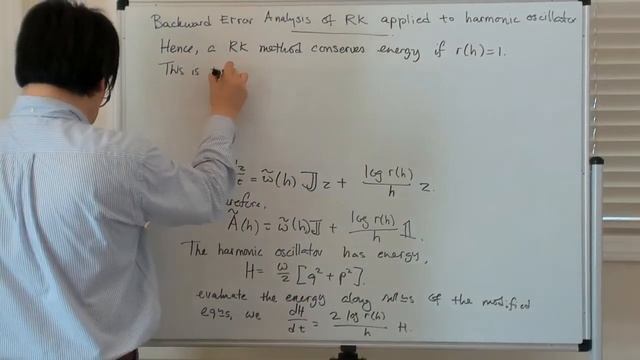 Backward Error Analysis of RK applied to harmonic oscillator
Hence, a RK method conserves energy if r(h)=1.
This is
= ω̃(h) 𝕁 z + log r(h)/h z.
Ã(h) = ω̃(h) 𝕁 + log r(h)/h 𝟙.
The harmonic oscillator has energy,
H = ω/2 [q² + p²].
evaluate the energy along of the modified
eqns, we dH/dt = 2 log r(h)/h H.